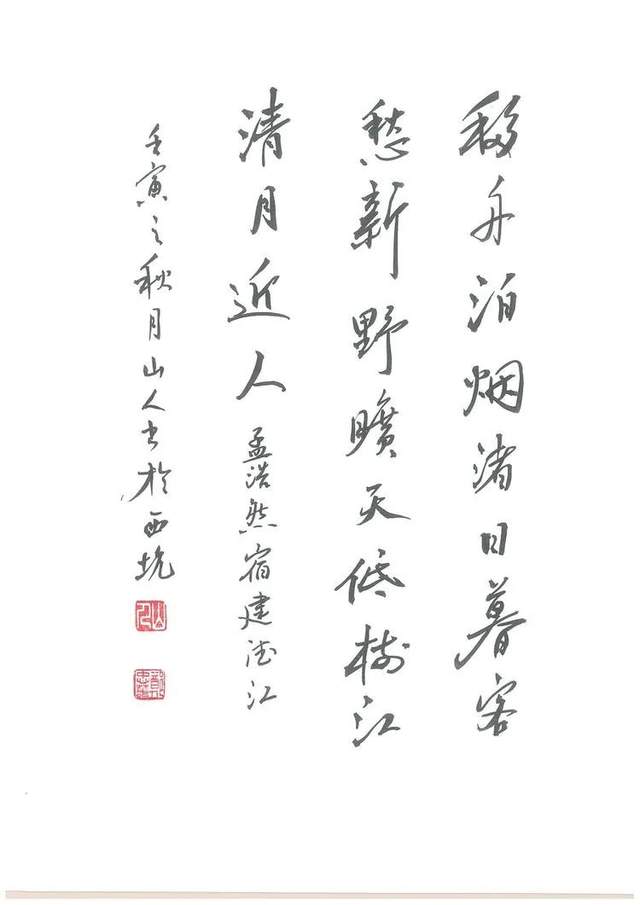 移舟泊烟渚日暮客
愁新野曠天低樹江
清月近人
孟浩然宿建德江
壬寅之秋月山人书於西坑
山人